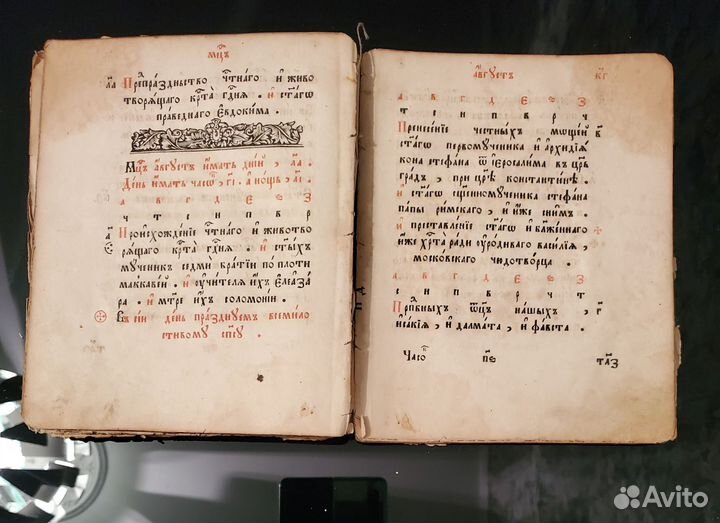 мц҃ъ
ла Предпраздньство чтⷭ҇наго и живо
творящаго крⷭ҇та гдⷭ҇ня . и ст҃аго
праведнаго Евдокима .
Мц҃ъ августъ имать дній , ла .
День имать часѡвъ , гі . а нощь , аі .
а в г д е ѕ з
ч т с и п в р
а Происхожденіе чтⷭ҇наго и животво
рящаго крⷭ҇та гдⷭ҇ня . и ст҃ыхъ
мученикъ седми братіи по плоти
маккавеи . и оучителя ихъ Елеаза
ра . и мт҃ре ихъ соломоніи .
Въ сіи день празднуемъ всемило
стивому сп҃су
августъ
а в г д е ѕ з
т с и п в р ч
Пренесеніе честныхъ мощей в
ст҃агѡ первомученика и архидїа
кона стефана ѿ іеросалима въ цр҃ь
градъ , при цр҃ѣ константинѣ .
и ст҃агѡ сщ҃енномученика стефана
папы римскагѡ , и иже снимъ .
и преставленіе ст҃агѡ и блаженнаго
иже хрⷭ҇та ради оуродиваго василіа ,
московскаго чюдотворца .
а в г д е ѕ з
с и п в р ч т
Прпⷣбныхъ ѿц҃ъ нашыхъ , г
ісакіа , и далмата , и фавста .
Часоⷡ
таз
Avito